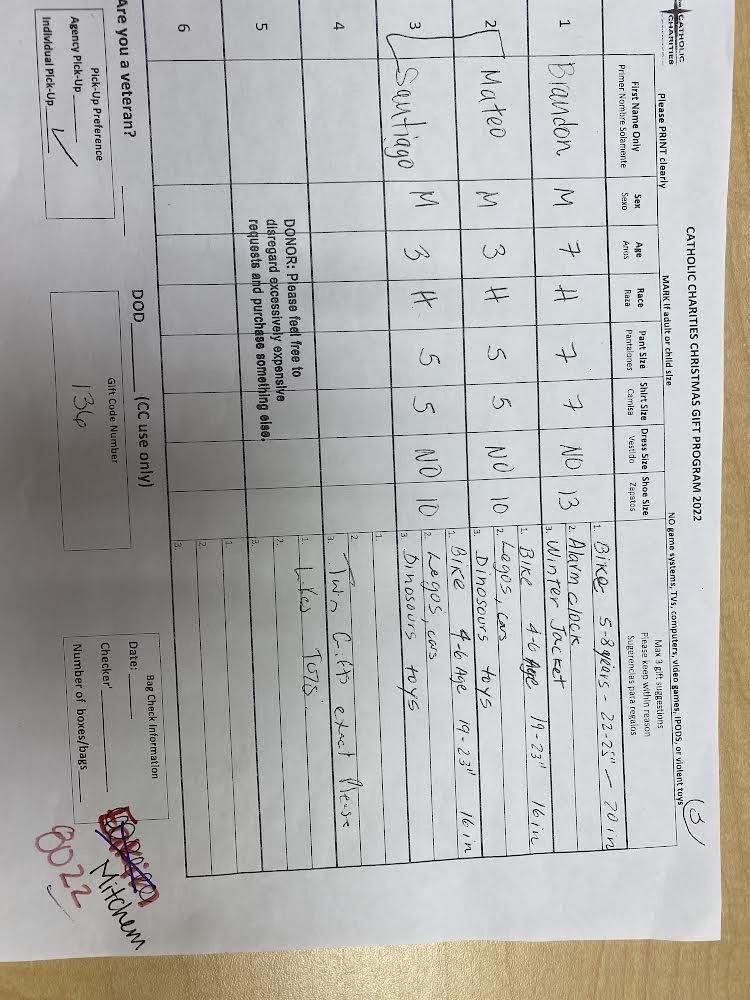 CATHOLIC
CHARITIES
CATHOLIC CHARITIES CHRISTMAS GIFT PROGRAM 2022
(3)
Please PRINT clearly
MARK if adult or child size
NO game systems, TVs, computers, video games, IPODS, or violent toys
First Name Only
Primer Nombre Solamente
Sex
Sexo
Age
Anos
Race
Raza
Pant Size
Pantalones
Shirt Size
Camisa
Dress Size
Vestido
Shoe Size
Zapatos
Max 3 gift suggestions
Please keep within reason
Sugerencias para regalos
1 Brandon M 7 H 7 7 NO 13
1. Bike 5-8 years - 22-25" - 20 in
2. Alarm clock
3. Winter Jacket
2 Mateo M 3 H 5 5 NO 10
1. Bike 4-6 Age 19-23" 16 in
2. Legos, cars
3. Dinosours toys
3 Santiago M 3 H 5 5 NO 10
1. Bike 4-6 Age 19-23" 16 in
2. Legos, cars
3. Dinosours toys
4
1.
2.
3. Twn Gifts exact Please
5
1. Likes Toys
2.
3.
6
1.
2.
3.
DONOR: Please feel free to
disregard excessively expensive
requests and purchase something else.
Are you a veteran?
DOD (CC use only)
Pick-Up Preference
Agency Pick-Up
Individual Pick-Up ✓
Gift Code Number
136
Bag Check Information
Date:
Checker'
Number of boxes/bags
Mitchem
8022